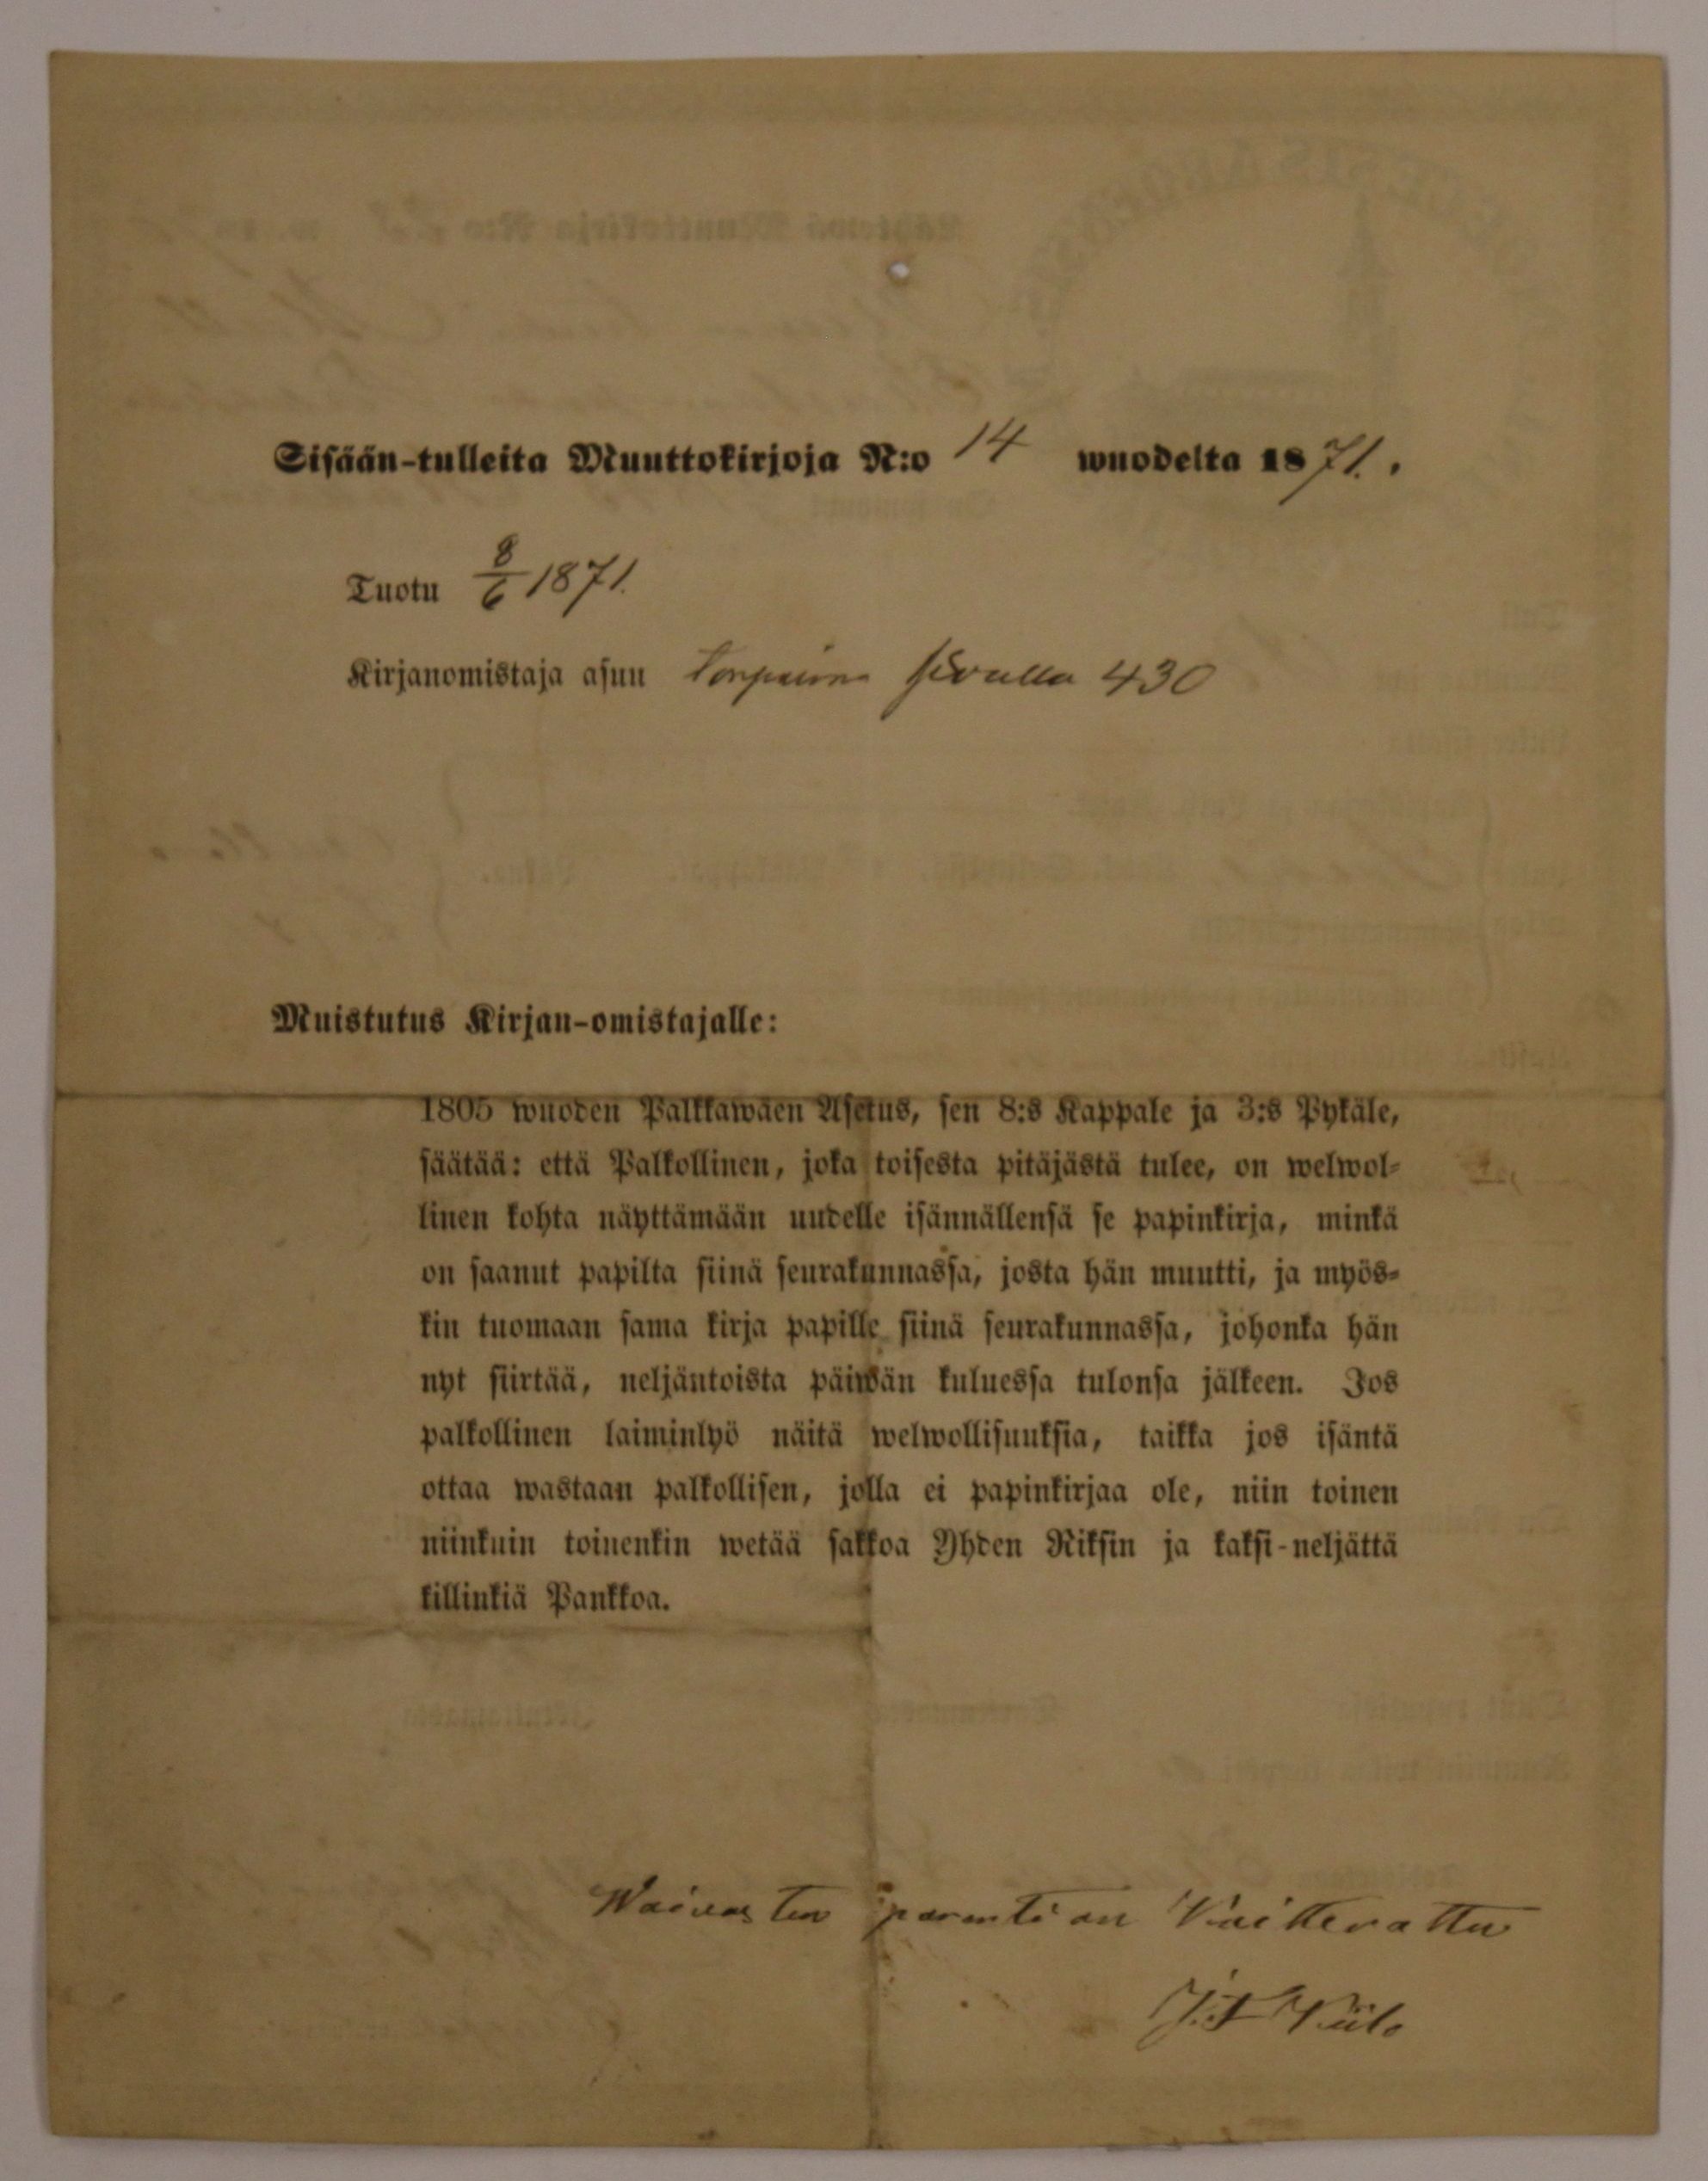 Sisään-tulleita Muuttokirjoja N:o 14 wuodelta 1871.
Tuotu 8/6 1871.
Kirjanomistaja asuu sivulla 430
Muistutus Kirjan-omistajalle:
1805 wuoden Palkkawäen Asetus, sen 8:s Kappale ja 3:s Pykäle,
säätää: että Palkollinen, joka toisesta pitäjästä tulee, on welwol-
linen kohta näyttämään uudelle isännällensä se papinkirja, minkä
on saanut papilta siinä seurakunnassa, josta hän muutti, ja myös-
kin tuomaan sama kirja papille siinä seurakunnassa, johonka hän
nyt siirtää, neljäntoista päiwän kuluessa tulonsa jälkeen. Jos
palkollinen laiminlyö näitä welwollisuuksia, taikka jos isäntä
ottaa wastaan palkollisen, jolla ei papinkirjaa ole, niin toinen
niinkuin toinenkin wetää sakkoa Yhden Riksin ja kaksi-neljättä
killinkiä Pankkoa.
Waivasten parenti on